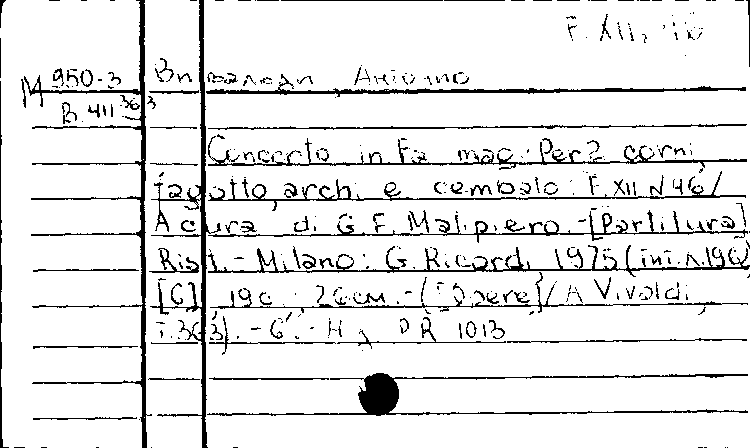 F. XII, 46
M 950-3
В 411 363
Вивальди, Антонио
Concerto in Fa mag.: Per 2 corni,
fagotto, archi e cembalo: F. XII N 46 /
A cura di G. F. Malipiero. - [Partitura]
Rist. - Milano: G. Ricordi, 1975 (
[6], 19 c.; 26 см. - ([Opere] / A Vivaldi,
т. 363). - 6'. - Н. д. PR 1013